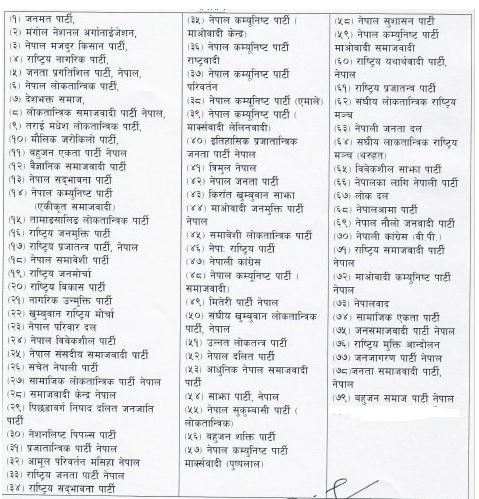 (१) जनमत पार्टी,
(२) मंगोल नेशनल अर्गनाईजेशन,
(३) नेपाल मजदुर किसान पार्टी,
(४) राष्ट्रिय नागरिक पार्टी,
(५) जनता प्रगतिशिल पार्टी, नेपाल,
(६) नेपाल लोकतान्त्रिक पार्टी,
(७) देशभक्त समाज,
(८) लोकतान्त्रिक समाजवादी पार्टी नेपाल,
(९) तराई मधेश लोकतान्त्रिक पार्टी,
(१०) मौलिक जरोकिलो पार्टी,
(११) बहुजन एकता पार्टी नेपाल
(१२) वैज्ञानिक समाजवादी पार्टी
(१३) नेपाल सद्भावना पार्टी
(१४) नेपाल कम्युनिष्ट पार्टी
(एकीकृत समाजवादी)
(१५) तामाङसालिङ लोकतान्त्रिक पार्टी
(१६) राष्ट्रिय जनमुक्ति पार्टी
(१७) राष्ट्रिय प्रजातन्त्र पार्टी, नेपाल
(१८) नेपाल समावेशी पार्टी
(१९) राष्ट्रिय जनमोर्चा
(२०) राष्ट्रिय विकास पार्टी
(२१) नागरिक उन्मुक्ति पार्टी
(२२) खुम्बुवान राष्ट्रिय मोर्चा
(२३) नेपाल परिवार दल
(२४) नेपाल विवेकशील पार्टी
(२५) नेपाल संघीय समाजवादी पार्टी
(२६) सचेत नेपाली पार्टी
(२७) सामाजिक लोकतान्त्रिक पार्टी नेपाल
(२८) समाजवादी केन्द्र नेपाल
(२९) पिछडावर्ग निषाद दलित जनजाति
पार्टी
(३०) नेशनलिष्ट पिपल्स पार्टी
(३१) प्रजातान्त्रिक पार्टी नेपाल
(३२) आमूल परिवर्तन मसिहा नेपाल
(३३) राष्ट्रिय जनता पार्टी नेपाल
(३४) राष्ट्रिय सद्भावना पार्टी
(३५) नेपाल कम्युनिष्ट पार्टी (
माओवादी केन्द्र)
(३६) नेपाल कम्युनिष्ट पार्टी
राष्ट्रवादी
(३७) नेपाल कम्युनिष्ट पार्टी
परिवर्तन
(३८) नेपाल कम्युनिष्ट पार्टी (एमाले)
(३९) नेपाल कम्युनिष्ट पार्टी (
मार्क्सवादी लेलिनवादी)
(४०) इतिहासिक प्रजातान्त्रिक
जनता पार्टी नेपाल
(४१) त्रिमुल नेपाल
(४२) नेपाल जनता पार्टी
(४३) किरांत खुम्बुवान साझा
(४४) माओवादी जनमुक्ति पार्टी
नेपाल
(४५) समावेशी लोकतान्त्रिक पार्टी
(४६) नेपाः राष्ट्रिय पार्टी
(४७) नेपाली कांग्रेस
(४८) नेपाल कम्युनिष्ट पार्टी (
समाजवादी)
(४९) मितेरी पार्टी नेपाल
(५०) संघीय खुम्बुवान लोकतान्त्रिक
पार्टी, नेपाल
(५१) उन्नत लोकतन्त्र पार्टी
(५२) नेपाल दलित पार्टी
(५३) आधुनिक नेपाल समाजवादी
पार्टी
(५४) साझा पार्टी, नेपाल
(५५) नेपाल सुकुम्बासी पार्टी (
लोकतान्त्रिक)
(५६) बहुजन शक्ति पार्टी
(५७) नेपाल कम्युनिष्ट पार्टी
मार्क्सवादी (पुष्पलाल)
(५८) नेपाल सुशासन पार्टी
(५९) नेपाल कम्युनिष्ट पार्टी
माओवादी समाजवादी
(६०) राष्ट्रिय यथार्थवादी पार्टी,
नेपाल
(६१) राष्ट्रिय प्रजातन्त्र पार्टी
(६२) संघीय लोकतान्त्रिक राष्ट्रिय
मञ्च
(६३) नेपाली जनता दल
(६४) संघीय लोकतान्त्रिक राष्ट्रिय
मञ्च (थरुहट)
(६५) विवेकशील साझा पार्टी
(६६) नेपालका लागि नेपाली पार्टी
(६७) लोक दल
(६८) नेपालआमा पार्टी
(६९) नेपाल नौलो जनवादी पार्टी
(७०) नेपाली कांग्रेस (वी.पी.)
(७१) राष्ट्रिय समाजवादी पार्टी
नेपाल
(७२) माओवादी कम्युनिष्ट पार्टी
नेपाल
(७३) नेपालवाद
(७४) सामाजिक एकता पार्टी
(७५) जनसमाजवादी पार्टी नेपाल
(७६) राष्ट्रिय मुक्ति आन्दोलन
(७७) जनजागरण पार्टी नेपाल
(७८)जनता समाजवादी पार्टी,
नेपाल
(७९) बहुजन समाज पार्टी नेपाल